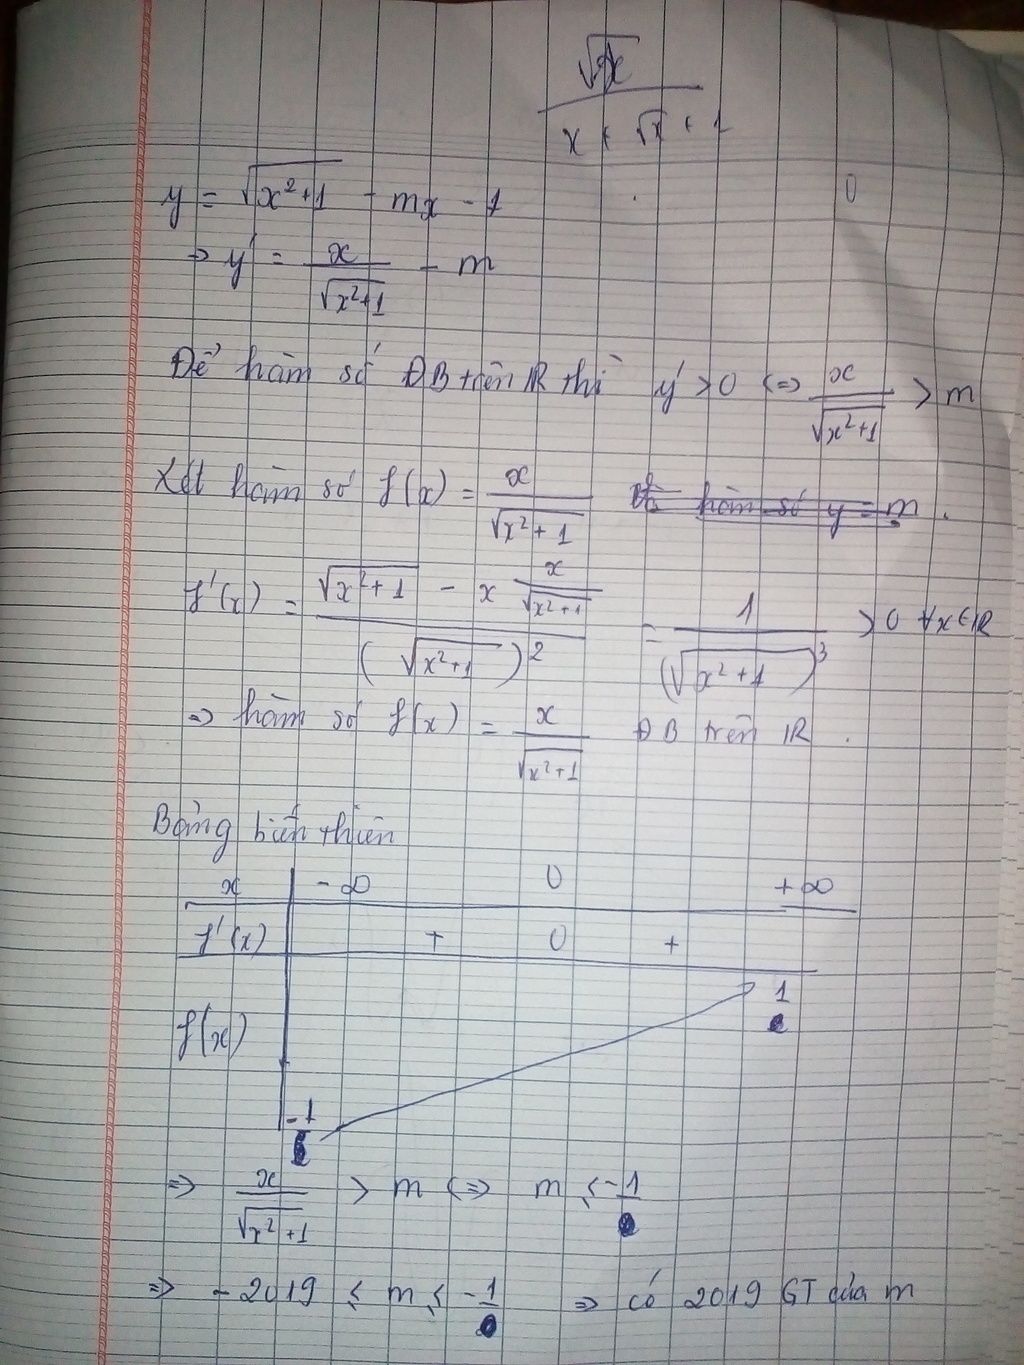 √x / (x + √x + 1)
0
y = √(x²+1) - mx - 1
→ y' = x/√(x²+1) - m
Để hàm số ĐB trên IR thì y' > 0 <=> x/√(x²+1) > m
Xét hàm số f(x) = x/√(x²+1) và hàm số y = m .
f'(x) = (√(x²+1) - x x/√(x²+1)) / (√(x²+1))² = 1/(√(x²+1))³ > 0 ∀x∈IR
=> hàm số f(x) = x/√(x²+1) ĐB trên IR .
Bảng biến thiên
x -∞ 0 +∞
f'(x) + 0 +
f(x) -1 1
=> x/√(x²+1) > m <=> m ≤ -1
=> -2019 ≤ m ≤ -1 => có 2019 GT của m